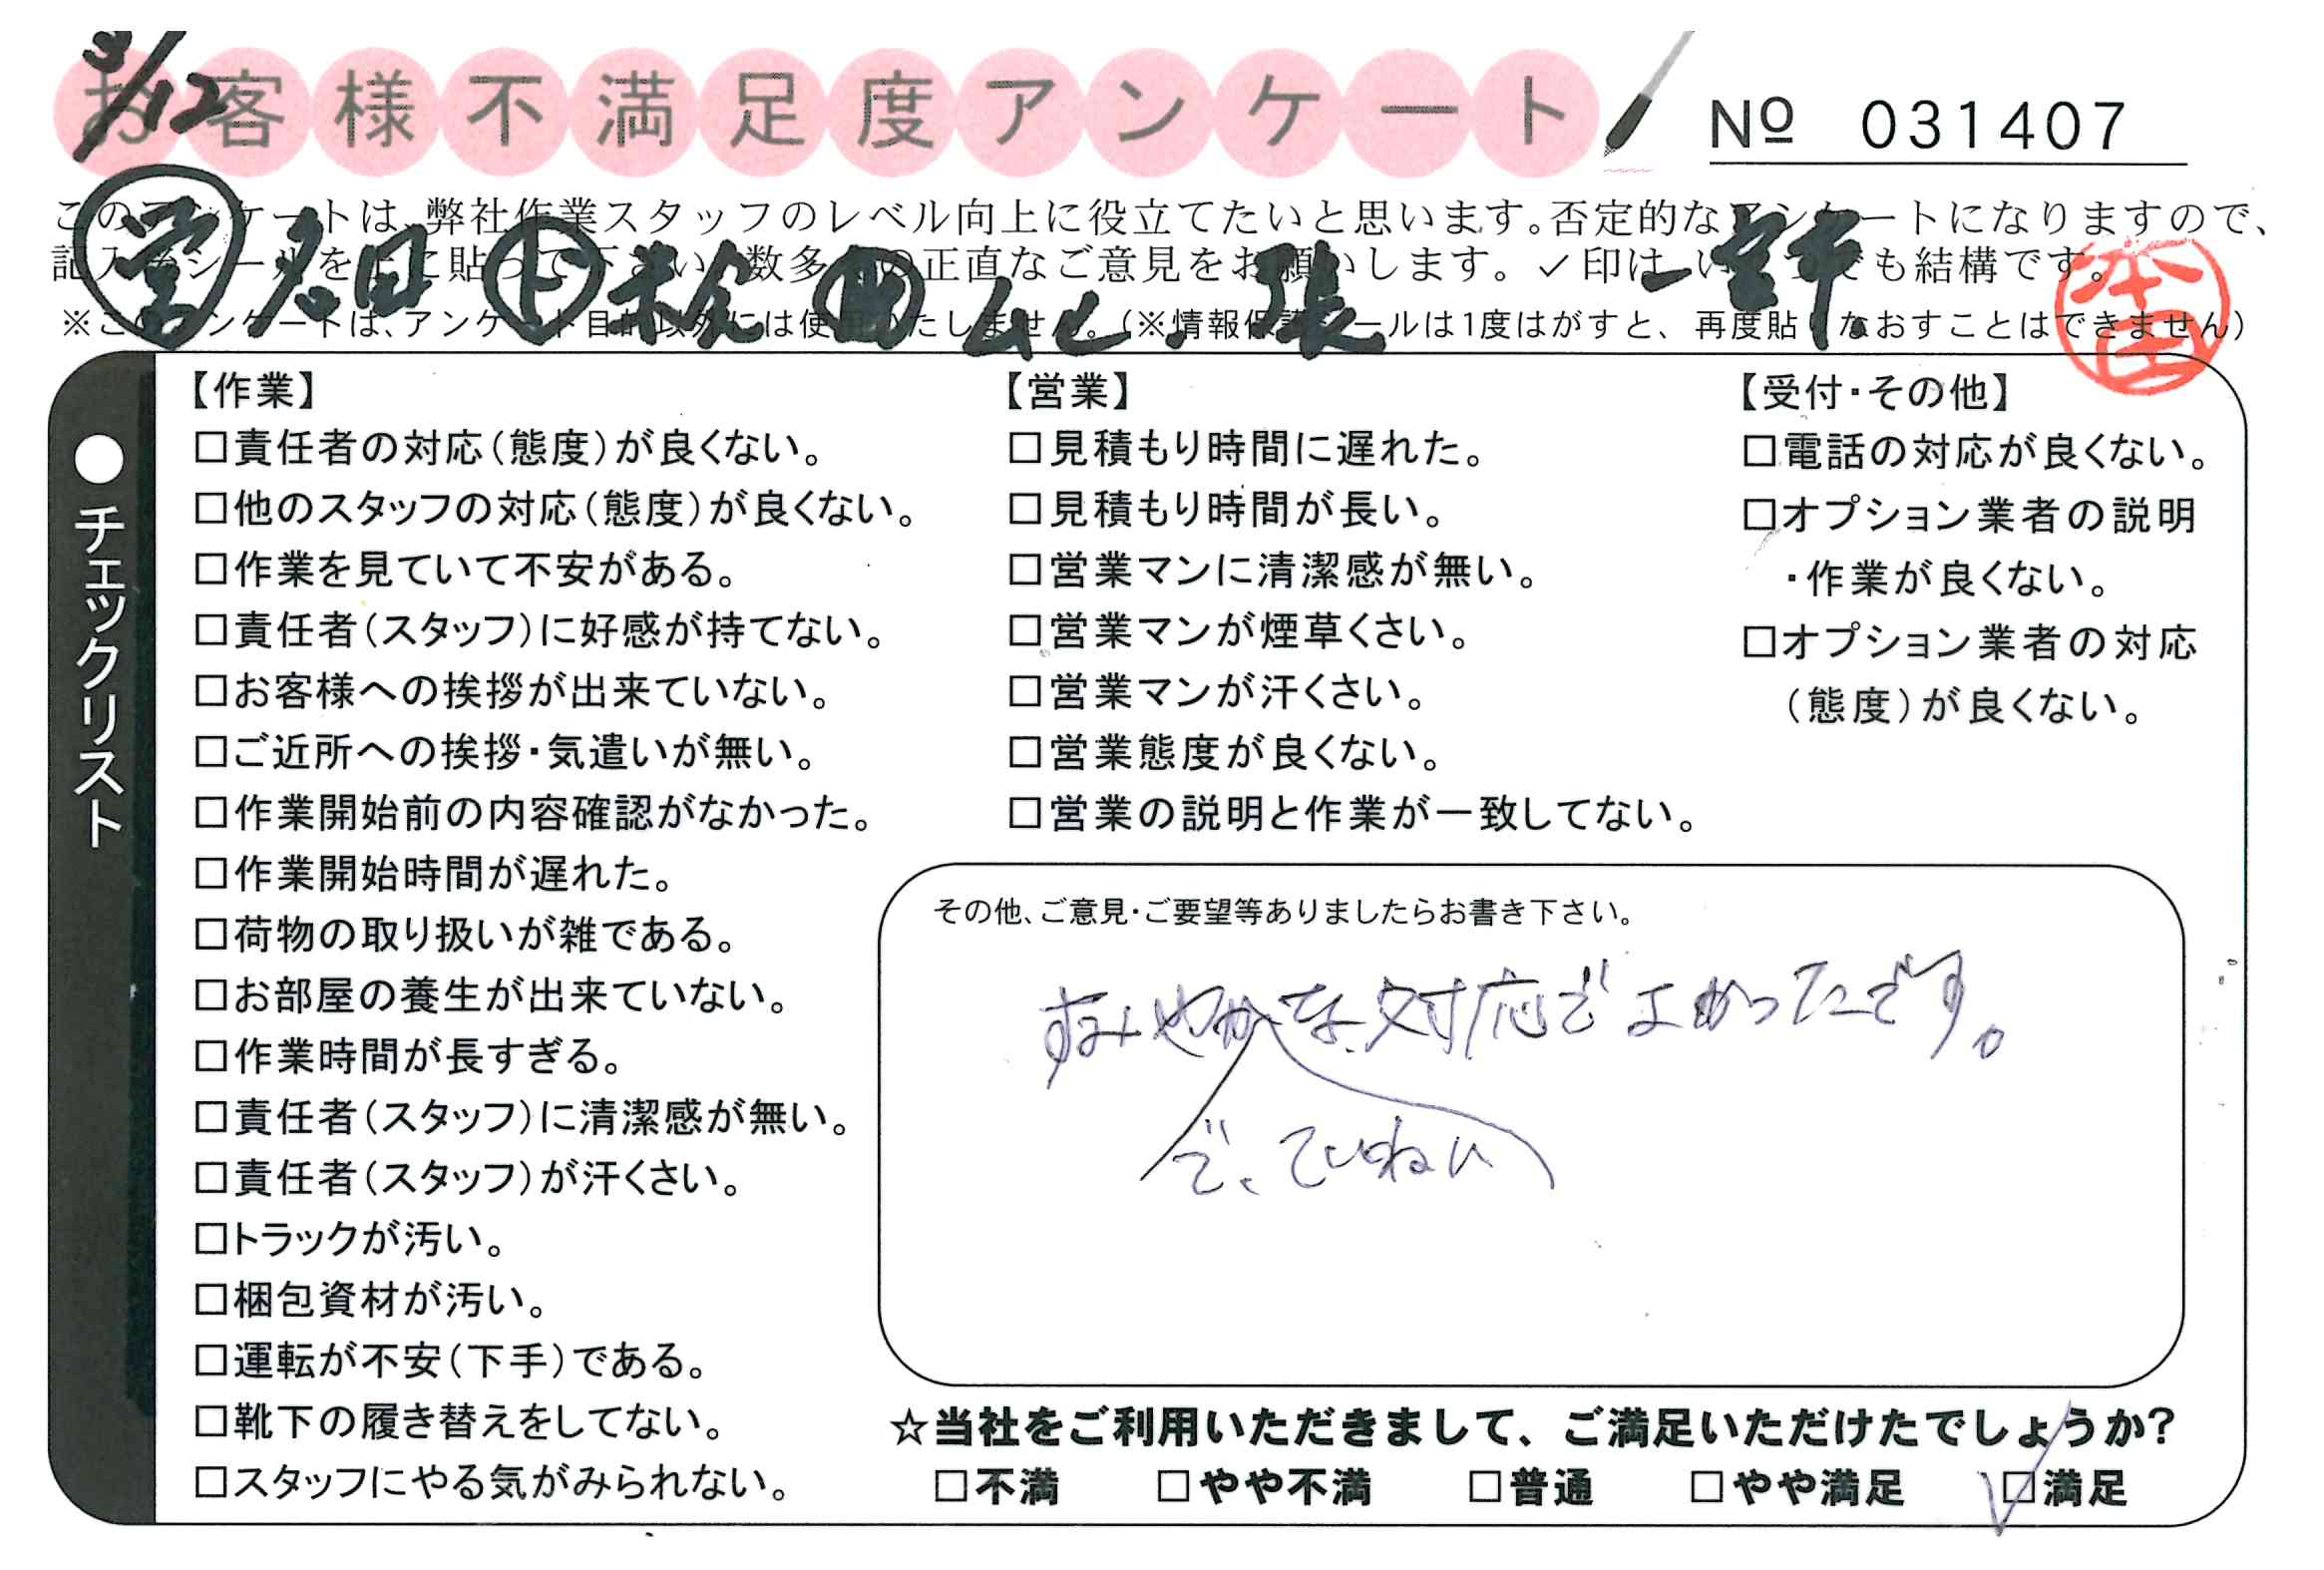 3/12
お客様不満足度アンケート
№ 031407
このアンケートは、弊社作業スタッフのレベル向上に役立てたいと思います。否定的なアンケートになりますので、
記入後シールを上に貼って下さい。数多くの正直なご意見をお願いします。✓印はいくつでも結構です。
※このアンケートは、アンケート目的以外には使用いたしません。(※情報保護シールは1度はがすと、再度貼りなおすことはできません)
営 ト 張 一宮市
本田
●チェックリスト
【作業】
□責任者の対応(態度)が良くない。
□他のスタッフの対応(態度)が良くない。
□作業を見ていて不安がある。
□責任者(スタッフ)に好感が持てない。
□お客様への挨拶が出来ていない。
□ご近所への挨拶・気遣いが無い。
□作業開始前の内容確認がなかった。
□作業開始時間が遅れた。
□荷物の取り扱いが雑である。
□お部屋の養生が出来ていない。
□作業時間が長すぎる。
□責任者(スタッフ)に清潔感が無い。
□責任者(スタッフ)が汗くさい。
□トラックが汚い。
□梱包資材が汚い。
□運転が不安(下手)である。
□靴下の履き替えをしてない。
□スタッフにやる気がみられない。
【営業】
□見積もり時間に遅れた。
□見積もり時間が長い。
□営業マンに清潔感が無い。
□営業マンが煙草くさい。
□営業マンが汗くさい。
□営業態度が良くない。
□営業の説明と作業が一致してない。
【受付・その他】
□電話の対応が良くない。
□オプション業者の説明
・作業が良くない。
□オプション業者の対応
(態度)が良くない。
その他、ご意見・ご要望等ありましたらお書き下さい。
すみやかな対応でよかったです。
で、ていねい
☆当社をご利用いただきまして、ご満足いただけたでしょうか?
□不満 □やや不満 □普通 □やや満足 ☑満足